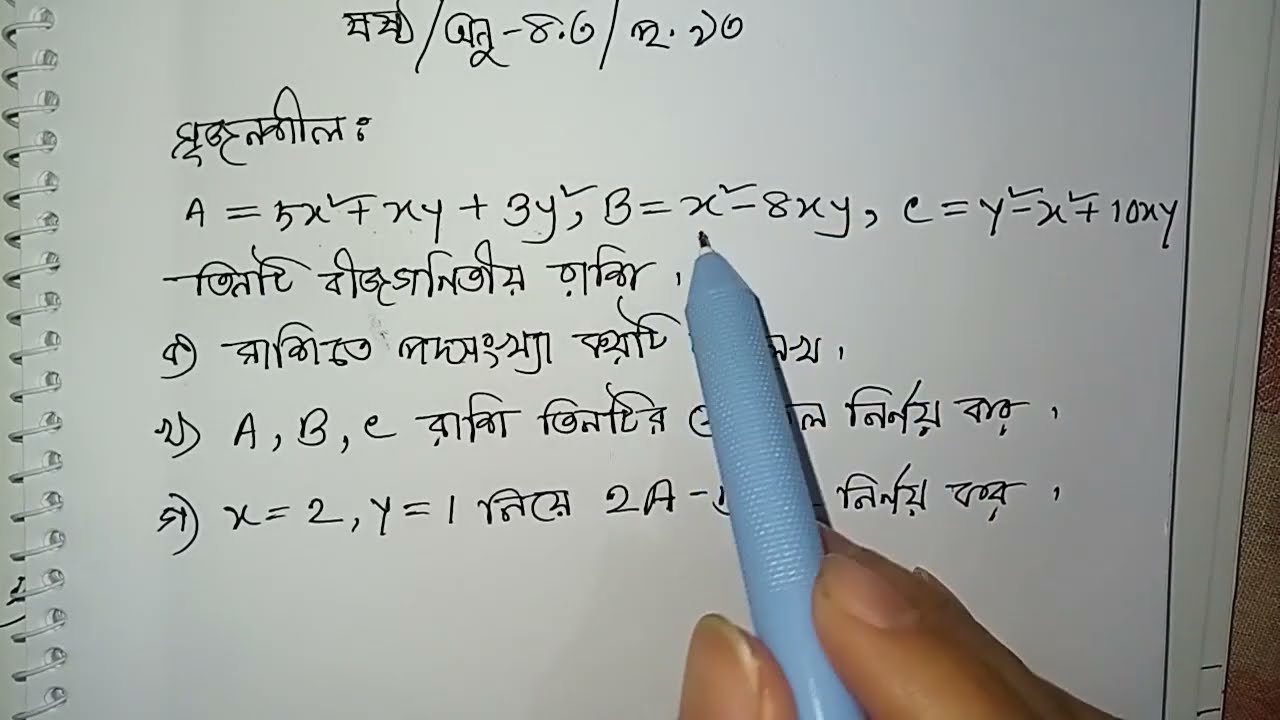 ষষ্ঠ/অনু-৪.৩/প্র. ২৩
সৃজনশীলঃ
A = 5x²+xy + 3y², B = x²-8xy, C = y²-x²+10xy
তিনটি বীজগনিতীয় রাশি।
ক) রাশিতে পদসংখ্যা কয়টি
খ) A, B, C রাশি তিনটির নির্ণয় কর।
গ) x = 2, y = 1 নিয়ে 2A - নির্ণয় কর।